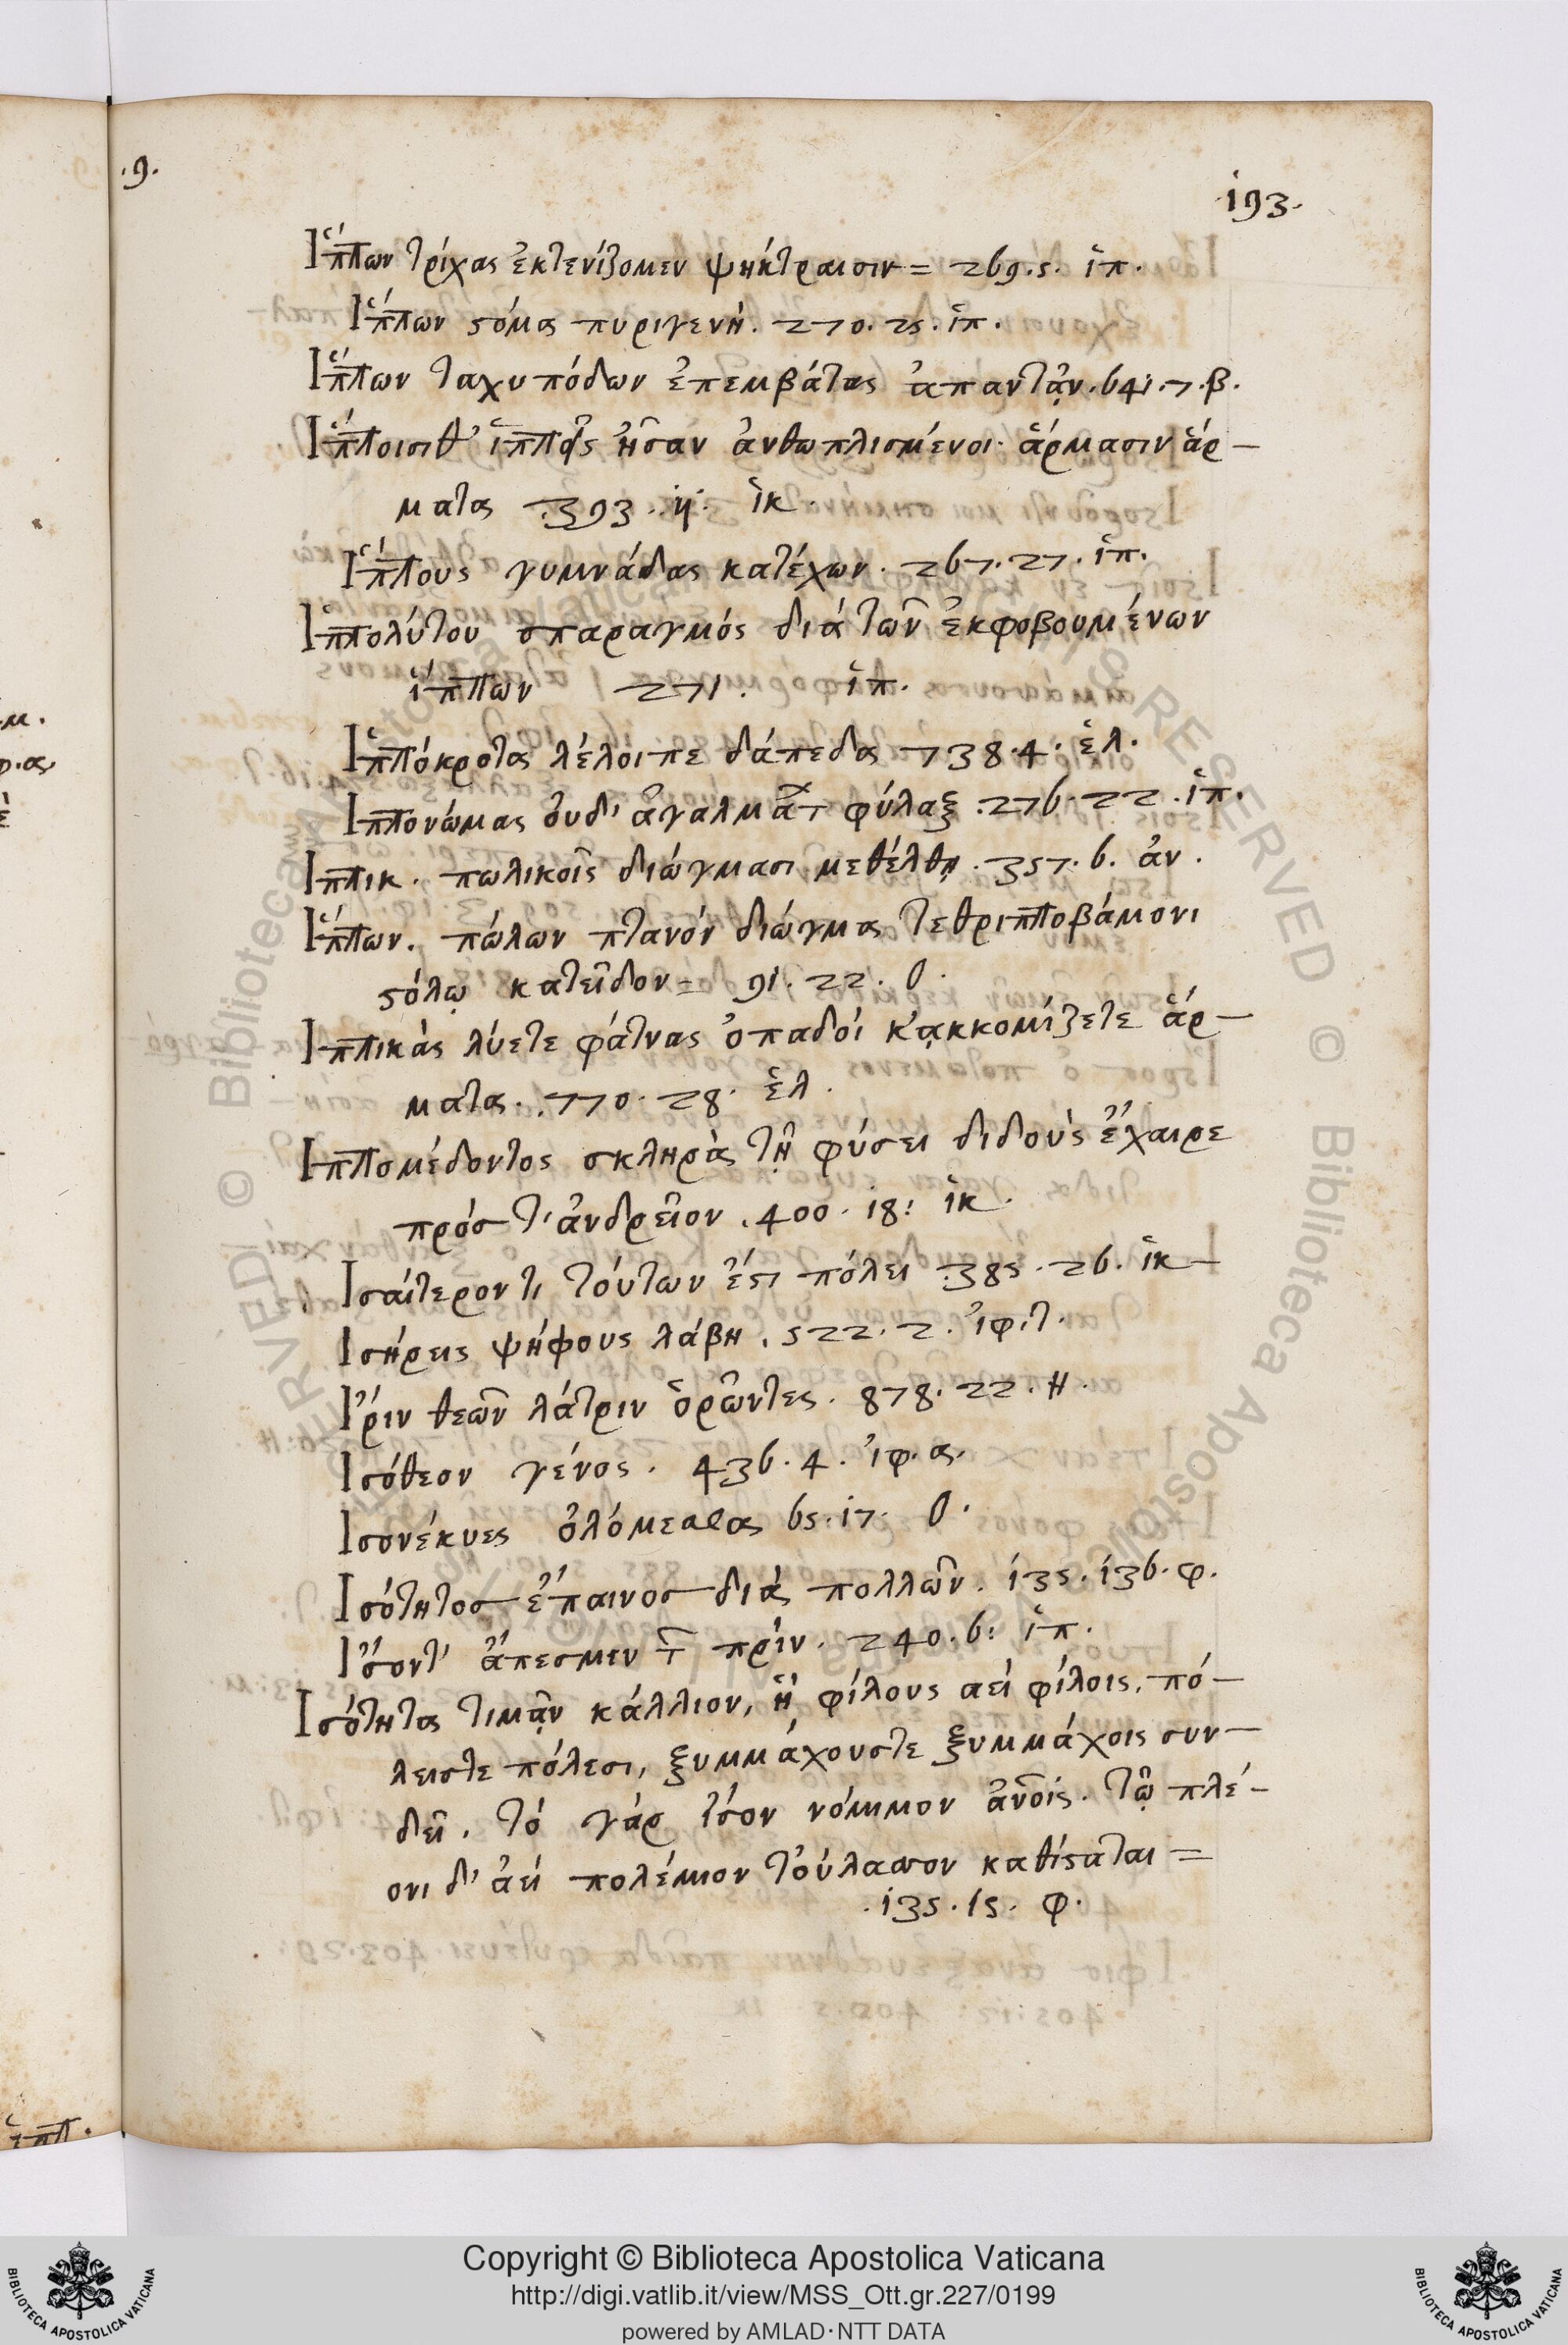 .9.
.193.
Ἵππων τρίχας ἐκτενίζομεν ψήκτραισιν = 269.5. ἱπ.
Ἵππων στόμα πυριγενῆ. 270. 25. ἱπ.
Ἵππων ταχυπόδων ἐπεμβάτας ἀπαντᾷν. 641. 7. β.
Ἵπποισι θ' ἵπποις ἦσαν ἀνθωπλισμένοι ἅρμασιν ἅρ-
ματα 393. ἱκ.
Ἵππους γυμνάδας κατέχων. 267. 27. ἱπ.
Ἱππολύτου σπαραγμός διά τῶν ἐκφοβουμένων
ἵππων 271. ἱπ.
Ἱππόκροτα λέλοιπε δάπεδα 738. 4. ἑλ.
Ἱππονώμας φύλαξ 276. 22. ἱπ.
Ἱππικ. πωλικοῖς διώγμασι μεθέλθῃ. 357. 6. ἀν.
Ἵππων. πώλων πτανόν διώγμα τεθριπποβάμονι
στόλῳ κατεῖδον = 91. 22. ο.
Ἱππικὰς λύετε φάτνας ὀπαδοί κᾀκκομίζετε ἅρ-
ματα. 770. 28. ἑλ.
Ἱππομέδοντος σκληρὰ τῇ φύσει διδοὺς ἔχαιρε
πρός τ' ἀνδρεῖον. 400. 18: ἱκ.
Ἰσαίτερον τι τούτων ἔστι πόλει 385. 26. ἱκ-
Ἰσήρεις ψήφους λάβη. 522. 2. ἰφ. τ.
Ἴριν θεῶν λάτριν ὁρῶντες. 878. 22. Η.
Ἰσόθεον γένος. 436. 4. ἰφ. α.
Ἰσονέκυες ὀλόμεθα 65. 17. ο.
Ἰσότητος ἔπαινος διὰ πολλῶν. 135. 136. φ.
Ἴσον τ' ἄπεσμεν τ πρίν. 240. 6: ἱπ.
Ἰσότητα τιμᾷν κάλλιον, ἣ φίλους αεί φίλοις, πό-
λεις τε πόλεσι, ξυμμάχους τε ξυμμάχοις συν-
δεῖ. τό γάρ ἴσον νόμιμον ἀνοίς. τῷ πλέ-
ονι δ' ἀεί πολέμιον τοὔλασσον καθίσταται =
.135. 15. φ.
Copyright © Biblioteca Apostolica Vaticana
http://digi.vatlib.it/view/MSS_Ott.gr.227/0199
powered by AMLAD·NTT DATA